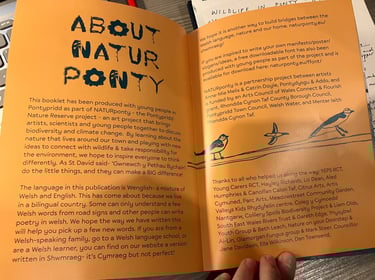 ABOUT
NATUR
PONTY
This booklet has been produced with young people in
Pontypridd as part of NATURponty - the Pontypridd
Nature Reserve project - an art project that brings
artists, scientists and young people together to discuss
biodiversity and climate change. By learning about the
nature that lives around our town and playing with new
ideas to connect with wildlife & take responsibility for
the environment, we hope to inspire everyone to think
differently. As St David said- 'Gwnewch y Pethau Bychain'
do the little things, and they can make a BIG difference!
The language in this publication is Wenglish - a mixture of
Welsh and English. This has come about because we live
in a bilingual country. Some can only understand a few
Welsh words from road signs and other people can write
poetry in welsh. We hope the way we have written this
will help you pick up a few new words. If you are from a
Welsh-speaking family, go to a Welsh language school, or
are a Welsh learner, you can find on our website a version
written in Shwmraeg- it's Cymraeg but not perfect!
WILDLIFE IN PONTY
We hope it is another way to build bridges between the
language, nature and our home. naturponty.eu/
If you are inspired to write your own manifesto/poster/
ideas, a free downloadable font has also been
produced with young people as part of the project and is
available for download here: naturponty.eu/font/
NATURponty is a partnership project between artists
Melis & Catrin Doyle, Pontyplygu & Addo, and
is funded by an Arts Council of Wales Connect & Flourish
grant, Rhondda Cynon Taf County Borough Council,
Pontypridd Town Council, Welsh Water, and Menter Iaith
Rhondda Cynon Taf.
Thanks to all who helped us along the way: YEPS RCT,
Young Carers RCT, Hayley Richards, Liz Dean, Alex
Humphries & Canolfan Calon Taf, Citrus Arts, Artis
Cymuned, Parc Arts, Meadow Street Community Garden,
Valleys Kids Rhydyfelin centre, Coleg y Cymoedd
Nantgarw, Colliery Spoils Biodiversity Project & Liam Olds,
South East Wales Rivers Trust & Gareth Edge, Plymouth
Youth Group & Beth Leach, Nature on your Doorstep &
Aoife Blight, Glamorgan Fungus group & Mark Steer, Councillor
Jane Davidson, Ella Wilkinson, Dan Townsend,